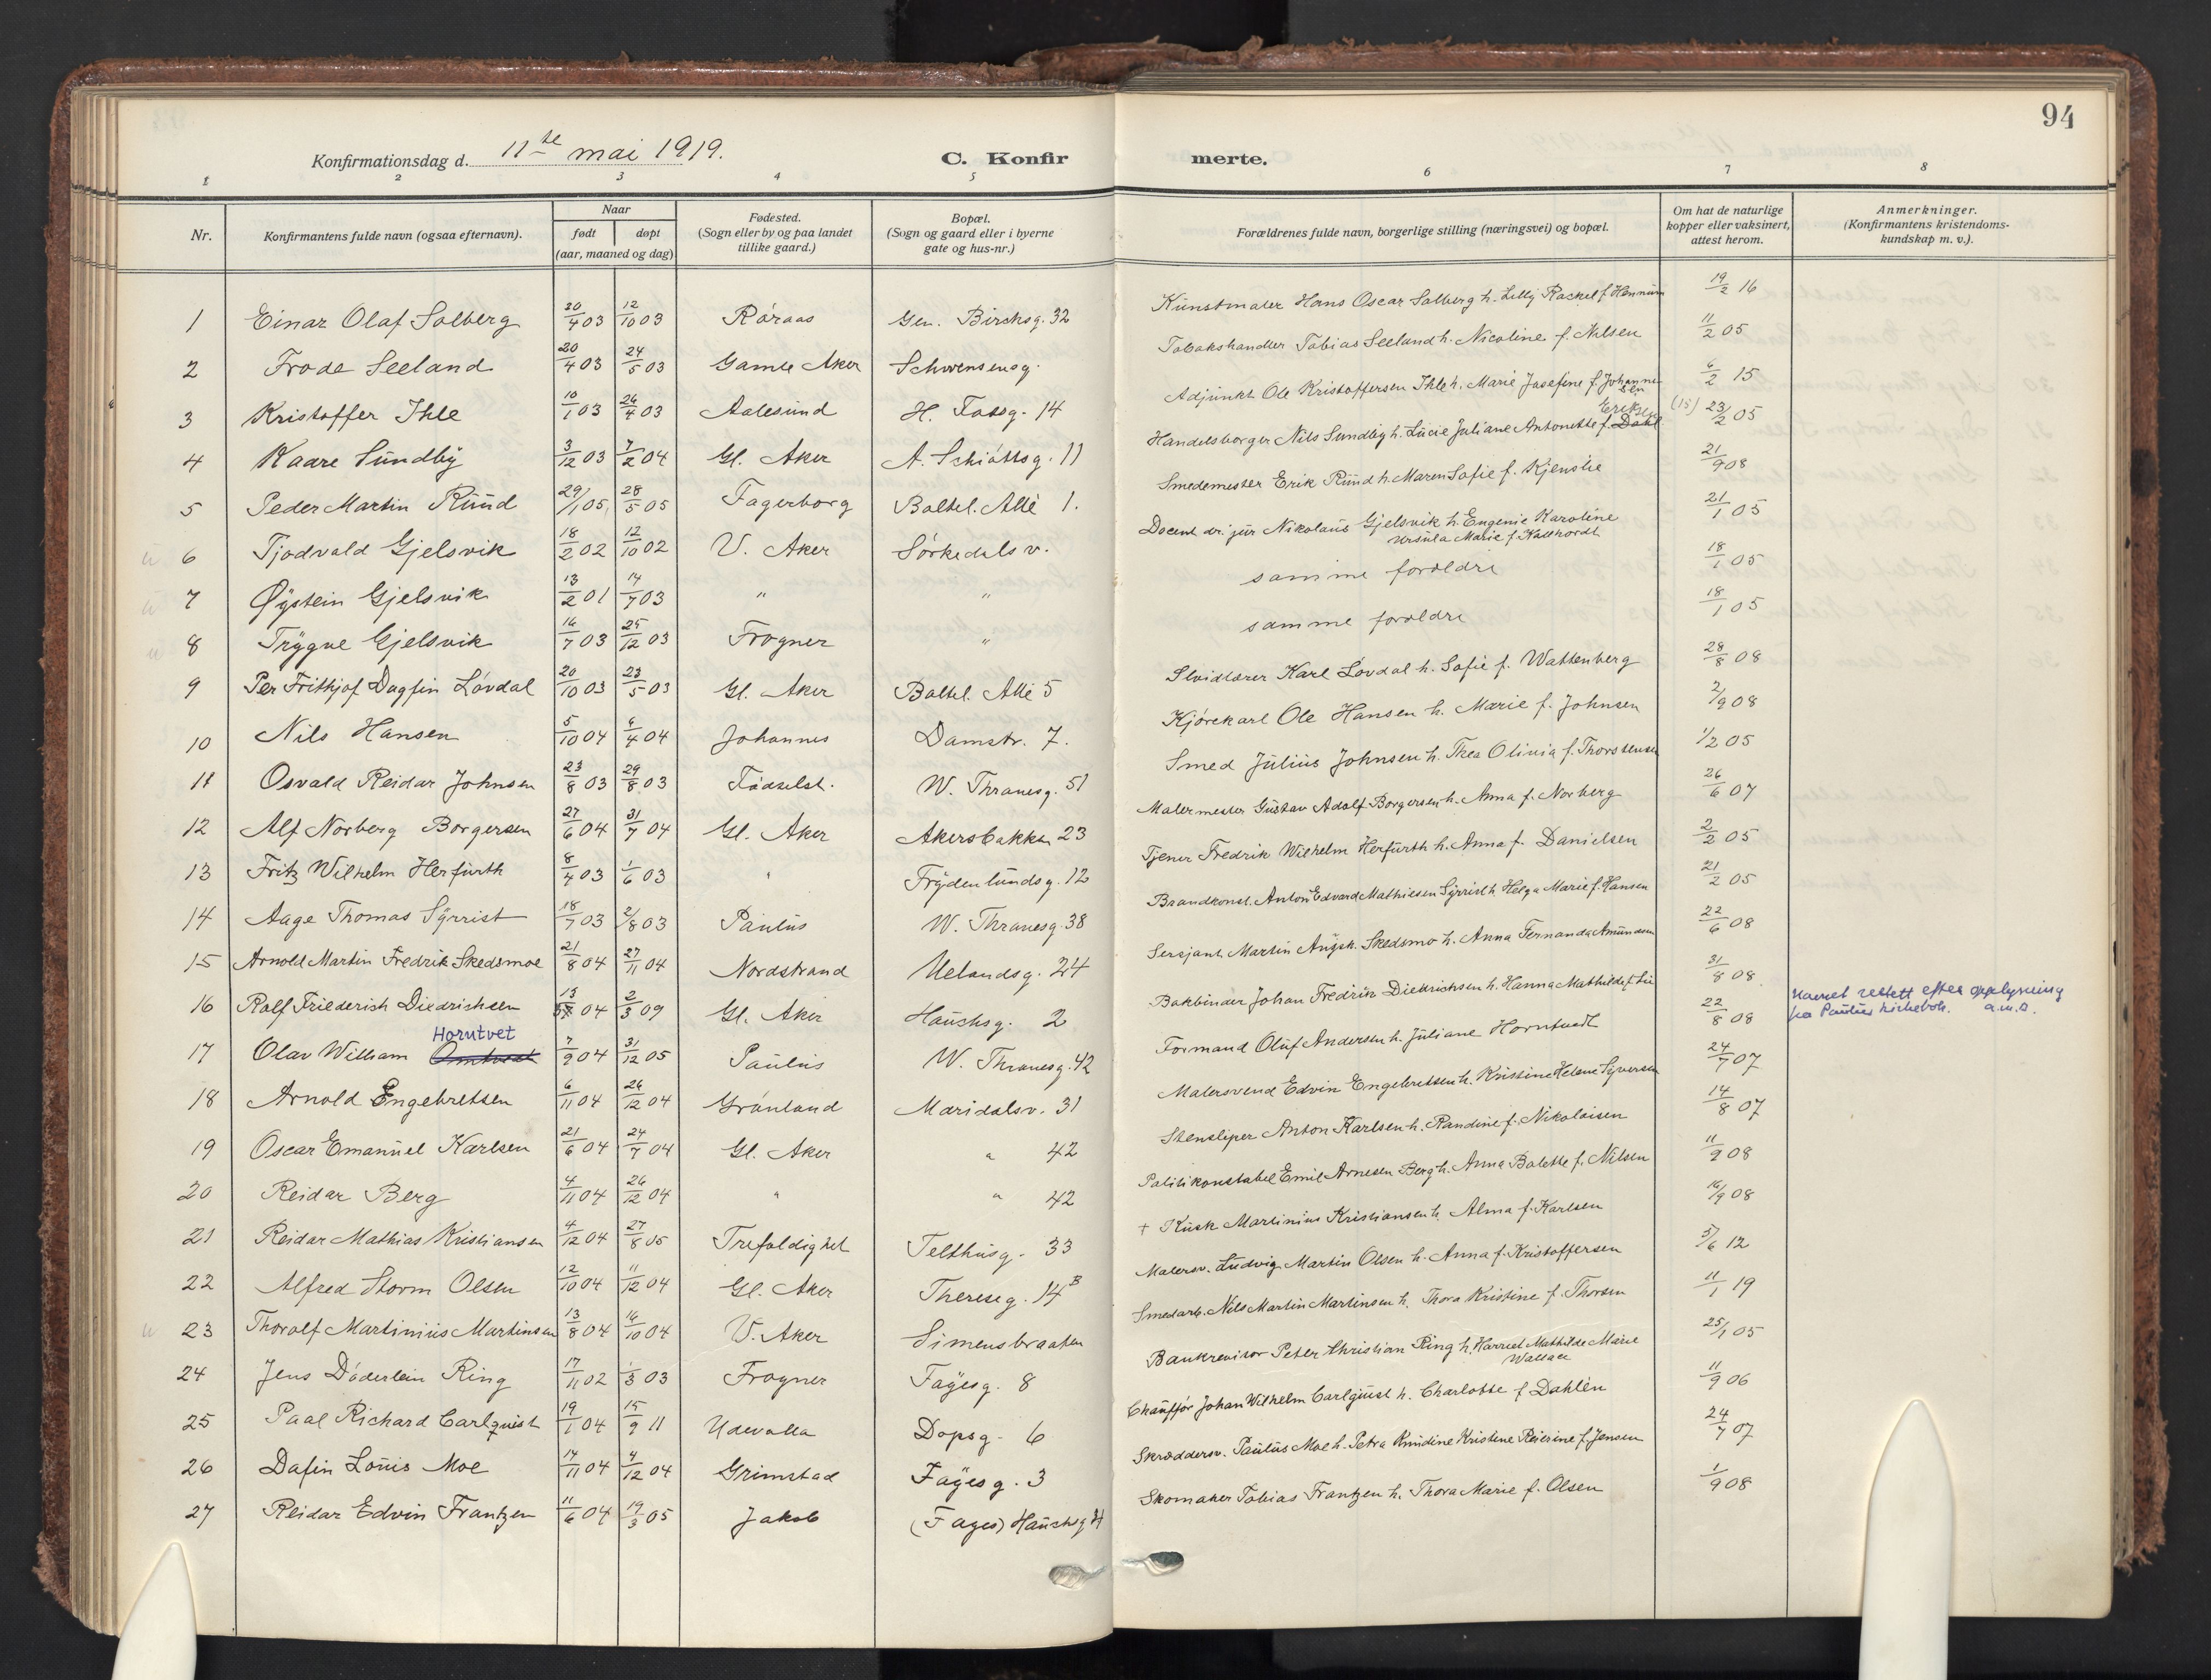 94
Konfirmationsdag d. 11te mai 1919.
C. Konfirmerte.
1 2 3 4 5 6 7 8
Nr.
Konfirmantens fulde navn (ogsaa efternavn).
Naar
født døpt
(aar, maaned og dag)
Fødested.
(Sogn eller by og paa landet
tillike gaard.)
Bopæl.
(Sogn og gaard eller i byerne
gate og hus-nr.)
Forældrenes fulde navn, borgerlige stilling (næringsvei) og bopæl.
Om hat de naturlige
kopper eller vaksinert,
attest herom.
Anmerkninger.
(Konfirmantens kristendoms-
kundskap m. v.).
1 Einar Olaf Solberg 20/4 03 12/10 03 Röraas Gen. Birchsg. 32 Kunstmaler Hans Oscar Solberg h. Lilly Rackel f. Hennum 19/2 16
2 Frode Seeland 20/4 03 24/5 03 Gamle Aker Schwensensg. Tobakshandler Tobias Seeland h. Nicoline f. Nilsen 11/2 05
3 Kristoffer Ihle 10/1 03 26/4 03 Aalesund H. Fossg. 14 Adjunkt Ole Kristoffersen Ihle h. Marie Josefine f. Johannesen 6/2 15
4 Kaare Sundby 3/12 03 7/2 04 Gl. Aker A. Schiöttsg. 11 Handelsborger Nils Sundby h. Lucie Juliane Antonette f. Dahl Eriksen (15) 23/2 05
5 Peder Martin Ruud 29/1 05 28/5 05 Fagerborg Boltel. Allé 1. Smedemester Erik Ruud h. Maren Sofie f. Kjenslie 21/9 08
6 Tjodvald Gjelsvik 18/2 02 12/10 02 V. Aker Sörkedalsv. Docent dr. jur Nikolaus Gjelsvik h. Eugenie Karoline
Ursula Marie f. Kallhordt 21/1 05
7 Øystein Gjelsvik 13/2 01 14/7 03 " " samme foreldre 18/1 05
8 Trygve Gjelsvik 16/7 03 25/12 03 Frogner " samme foreldre 18/1 05
9 Per Frithjof Dagfin Lövdal 20/10 03 23/5 03 Gl. Aker Boltel. Allé 5 Sløidlærer Karl Lövdal h. Sofie f. Wattenberg 28/8 08
10 Nils Hansen 5/10 04 4/4 04 Johannes Damstr. 7. Kjörekarl Ole Hansen h. Marie f. Johnsen 2/9 08
11 Osvald Reidar Johnsen 23/8 03 29/8 03 Födselst. W. Thranesg. 51 Smed Julius Johnsen h. Thea Olivia f. Thorstensen 1/2 05
12 Alf Norberg Borgersen 27/6 04 31/7 04 Gl. Aker Akersbakken 23 Malermester Gustav Adolf Borgersen h. Anna f. Norberg 26/6 07
13 Fritz Wilhelm Herfurth 8/4 03 1/6 03 " Frydenlundsg. 12 Tjener Fredrik Wilhelm Herfurth h. Anna f. Danielsen 2/2 05
14 Aage Thomas Syrrist 18/7 03 2/8 03 Paulus W. Thranesg. 38 Brandkonst. Anton Edvard Mathiesen Syrrist h. Helga Marie f. Hansen 21/2 05
15 Arnold Martin Fredrik Skedsmoe 21/8 04 27/11 04 Nordstrand Uelandsg. 24 Sersjant Martin August. Skedsmo h. Anna Fernanda Amundsen 22/6 08
16 Ralf Friederich Diedrichsen 04 2/3 09 Gl. Aker Hauchsg. 2 Bokbinder Johan Fredrik Diedrichsen h. Hanna Mathilde f. Lie 31/8 08
17 Olav William Horntvet Omtvedt 7/9 04 31/12 05 Paulus W. Thranesg. 42 Formand Oluf Andersen h. Juliane Horntvedt 22/8 08 Navnet rettett efter opplysning
fra Paulus kirkebok. a.m.s.
18 Arnold Engebretsen 6/11 04 26/12 04 Grönland Maridalsv. 31 Malersvend Edvin Engebretsen h. Kristine Helene Syversen 24/7 07
19 Oscar Emanuel Karlsen 21/6 04 24/7 04 Gl. Aker " 42 Stensliper Anton Karlsen h. Randine f. Nikolaisen 14/8 07
20 Reidar Berg 4/11 04 26/12 04 " " 42 Politikonstabel Emil Arnesen Berg h. Anna Bolette f. Nilsen 11/9 08
21 Reidar Mathias Kristiansen 4/12 04 27/8 05 Trefoldighet Telthusg. 33 + Kusk Martinius Kristiansen h. Alma f. Karlsen 16/9 08
22 Alfred Storm Olsen 12/10 04 11/12 04 Gl. Aker Thereseg. 14B Malersv. Ludvig Martin Olsen h. Anna f. Kristoffersen 5/6 12
23 Thoralf Martinius Martinsen 13/8 04 16/10 04 V. Aker Simensbraaten Smedarb. Nils Martin Martinsen h. Thora Kristine f. Thorsen 11/1 19
24 Jens Döderlein Ring 17/11 02 1/3 03 Frogner Fayesg. 8 Bankrevisor Peter Christian Ring h. Harriet Mathilde Marie
Wallace 25/1 05
25 Paal Richard Carlquist 19/1 04 15/9 11 Udevalla Dopsg. 6 Chauffør Johan Wilhelm Carlquist h. Charlotte f. Dahlèn 11/9 06
26 Dafin Louis Moe 14/11 04 4/12 04 Grimstad Fayesg. 3 Skræddersv. Paulus Moe h. Petra Knudine Kristine Reierine f. Jensen 24/7 07
27 Reidar Edvin Frantzen 11/6 04 19/3 05 Jakob (Fayes) Hauchsg Skomaker Tobias Frantzen h. Thora Marie f. Olsen 1/9 08